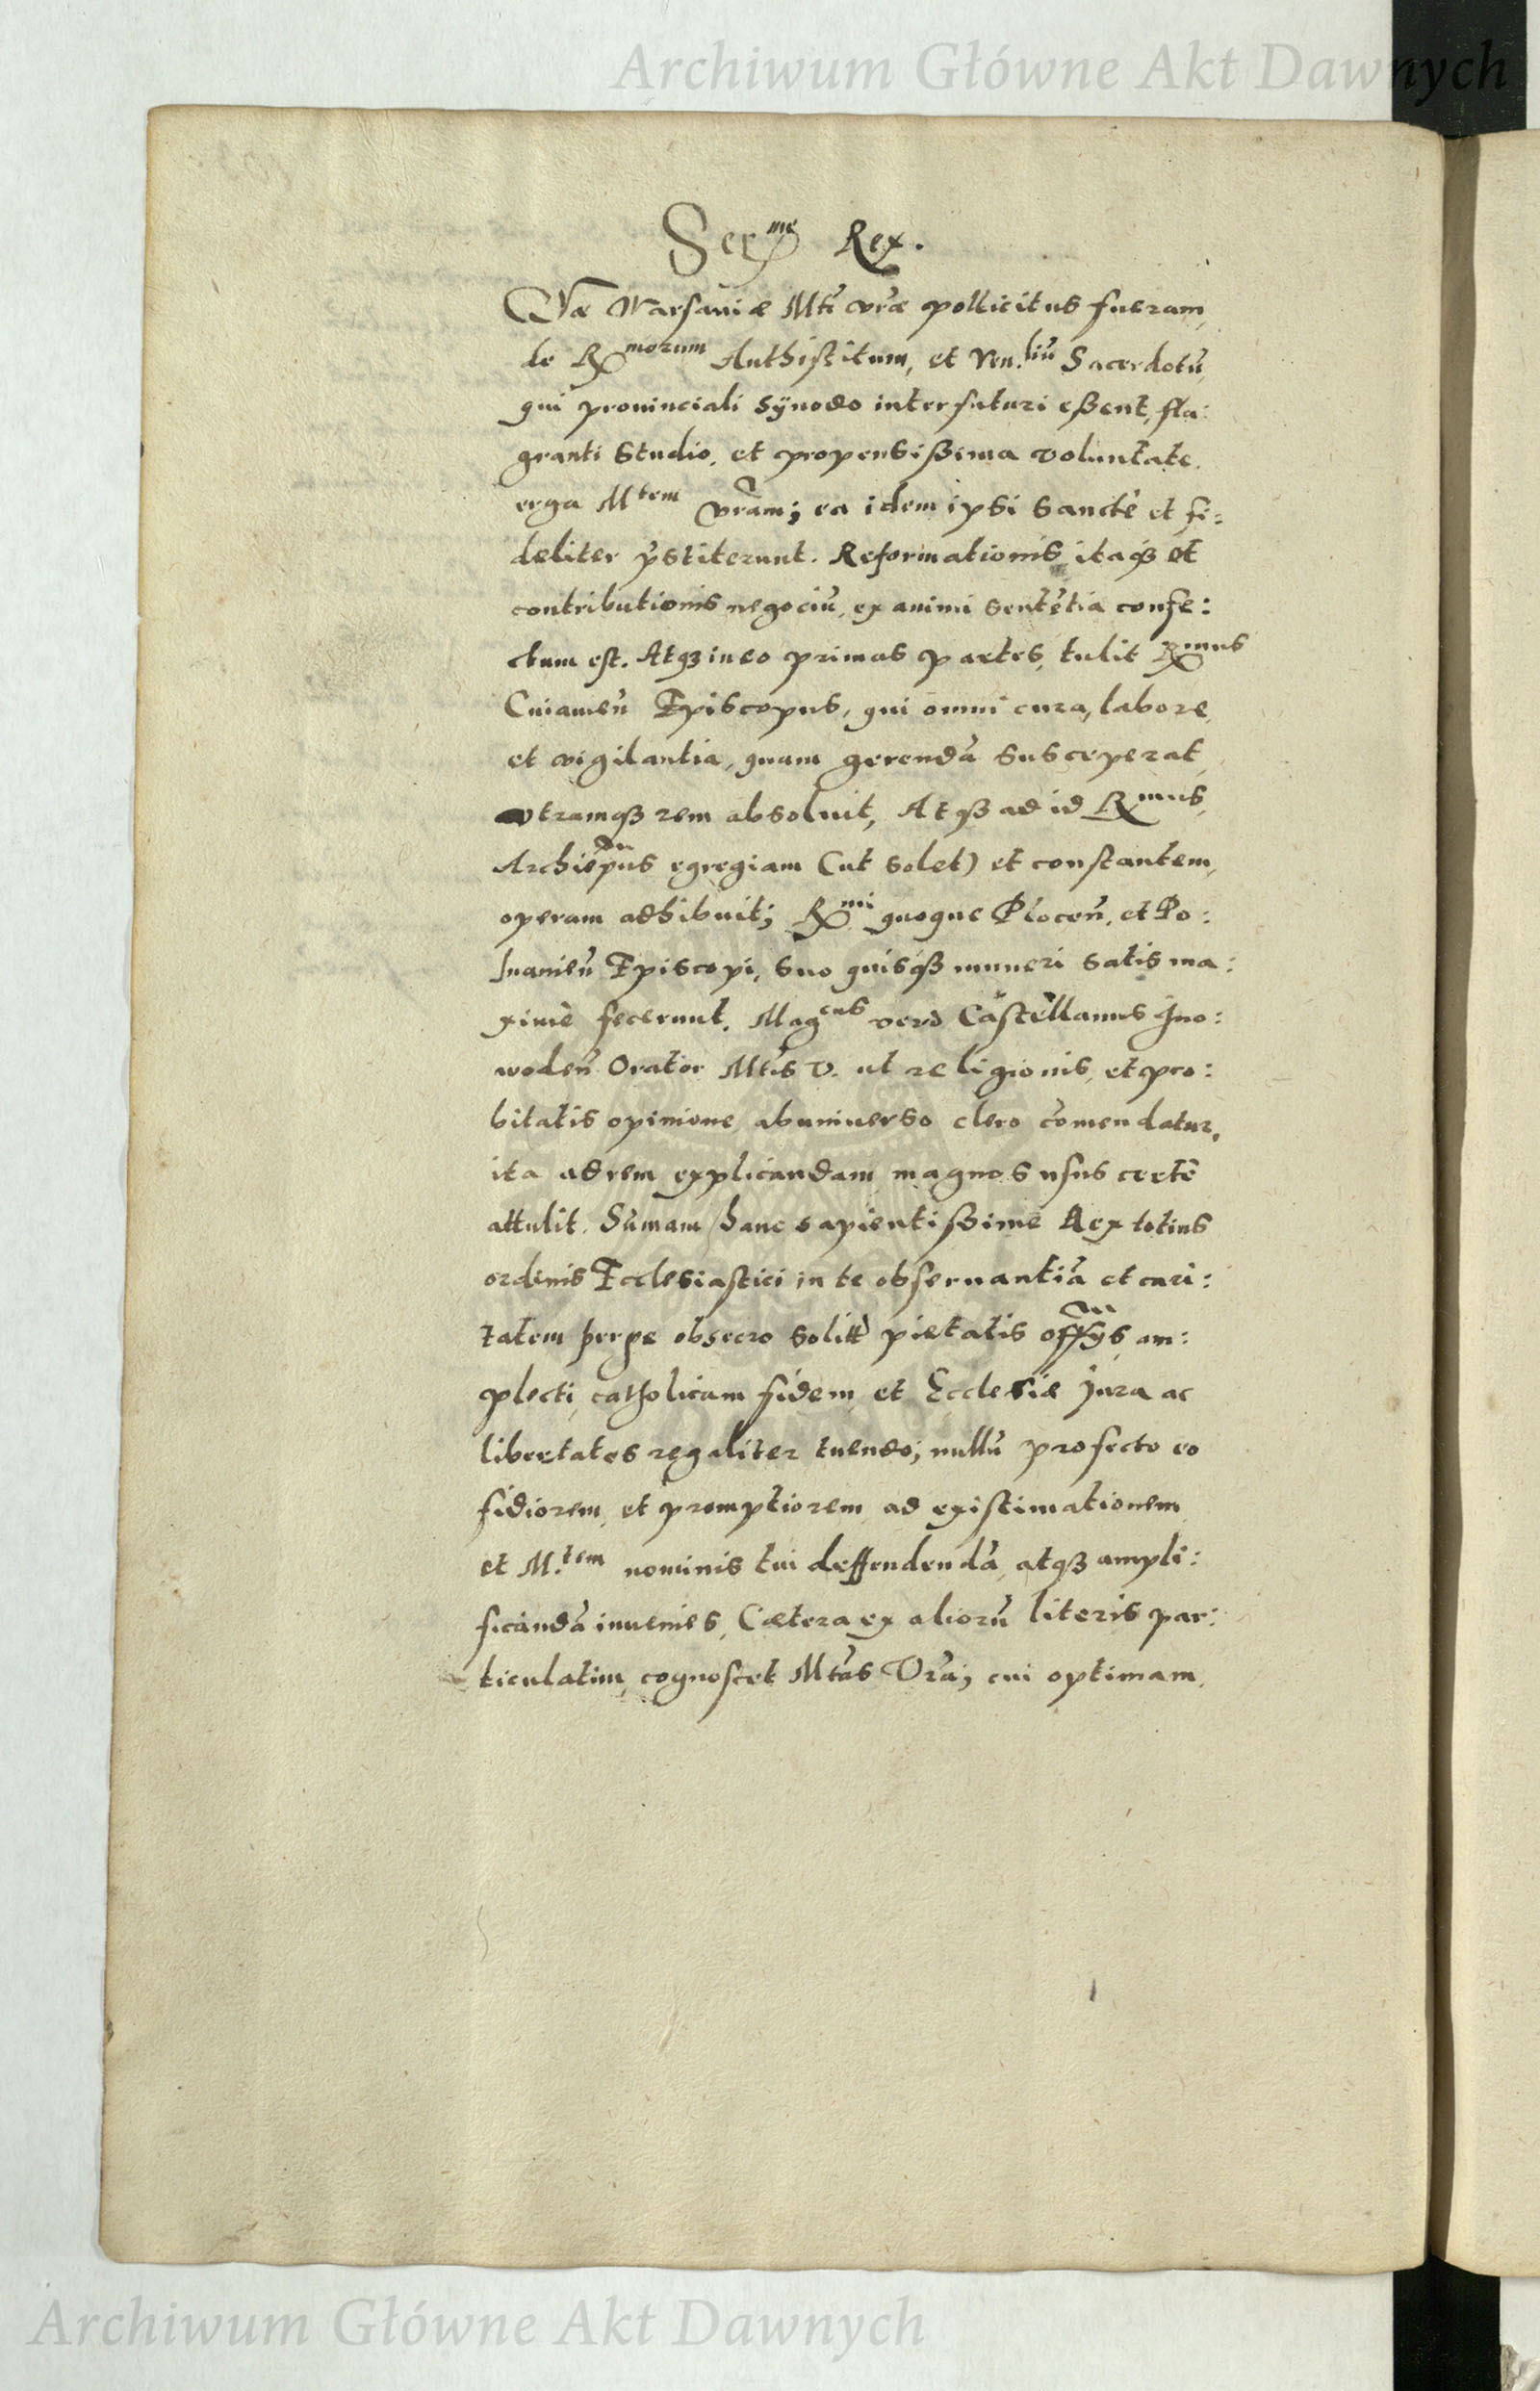 Archiwum Główne Akt Dawnych
Ser.me Rex.
Quæ Warsauiæ Mti vræ pollicitus fueram,
de Rmorum Anthistitum, et Ven.liu Sacerdotū,
qui prouinciali sÿnodo interfuturi eßent, fla:
granti studio, et propensißima voluntate.
erga Mtem vram; ea idem ipsi sancte et fi:
deliter pstiterunt. Reformationis itaq3 et
contributionis negociū, ex animi sentētia confe:
ctum est. Atq3 in eo primas partes, tulit Rmus
Cuiauien̄ Episcopus, qui omni cura, labore,
et vigilantia, quam gerendā susceperat,
vtramq3 rem absoluit, Atq3 ad id Rmus,
Archiepus egregiam (ut solet) et constantem,
operam adhibuit; Rmi quoque Plocen̄, et Po:
snanien̄ Episcopi, suo quisq3 muneri satis ma:
xime fecerunt. Mag.cus vero Castellanus Ino:
wloden̄ Orator Mtis V. ut religionis, et pro:
bitatis opinione, ab uniuerso clero cōmendatur,
ita ad rem explicandam magnos usus certe
attulit. Sūmam hanc sapientißime Rex totius
ordinis Ecclesiastici in te obseruantiā et cari:
tatem perge obsecro solitę pietatis offÿs, am:
plecti, catholicam fidem, et Ecclesiæ jura ac
libertates regaliter tuendo; nullū profecto eo
fidiorem, et promptiorem, ad existimationem,
et M.tem nominis tui deffendendā, atq3 ampli:
ficandā inuenies, Cætera ex aliorū literis par:
ticulatim, cognoscet Mtas Vra; cui optimam,
Archiwum Główne Akt Dawnych